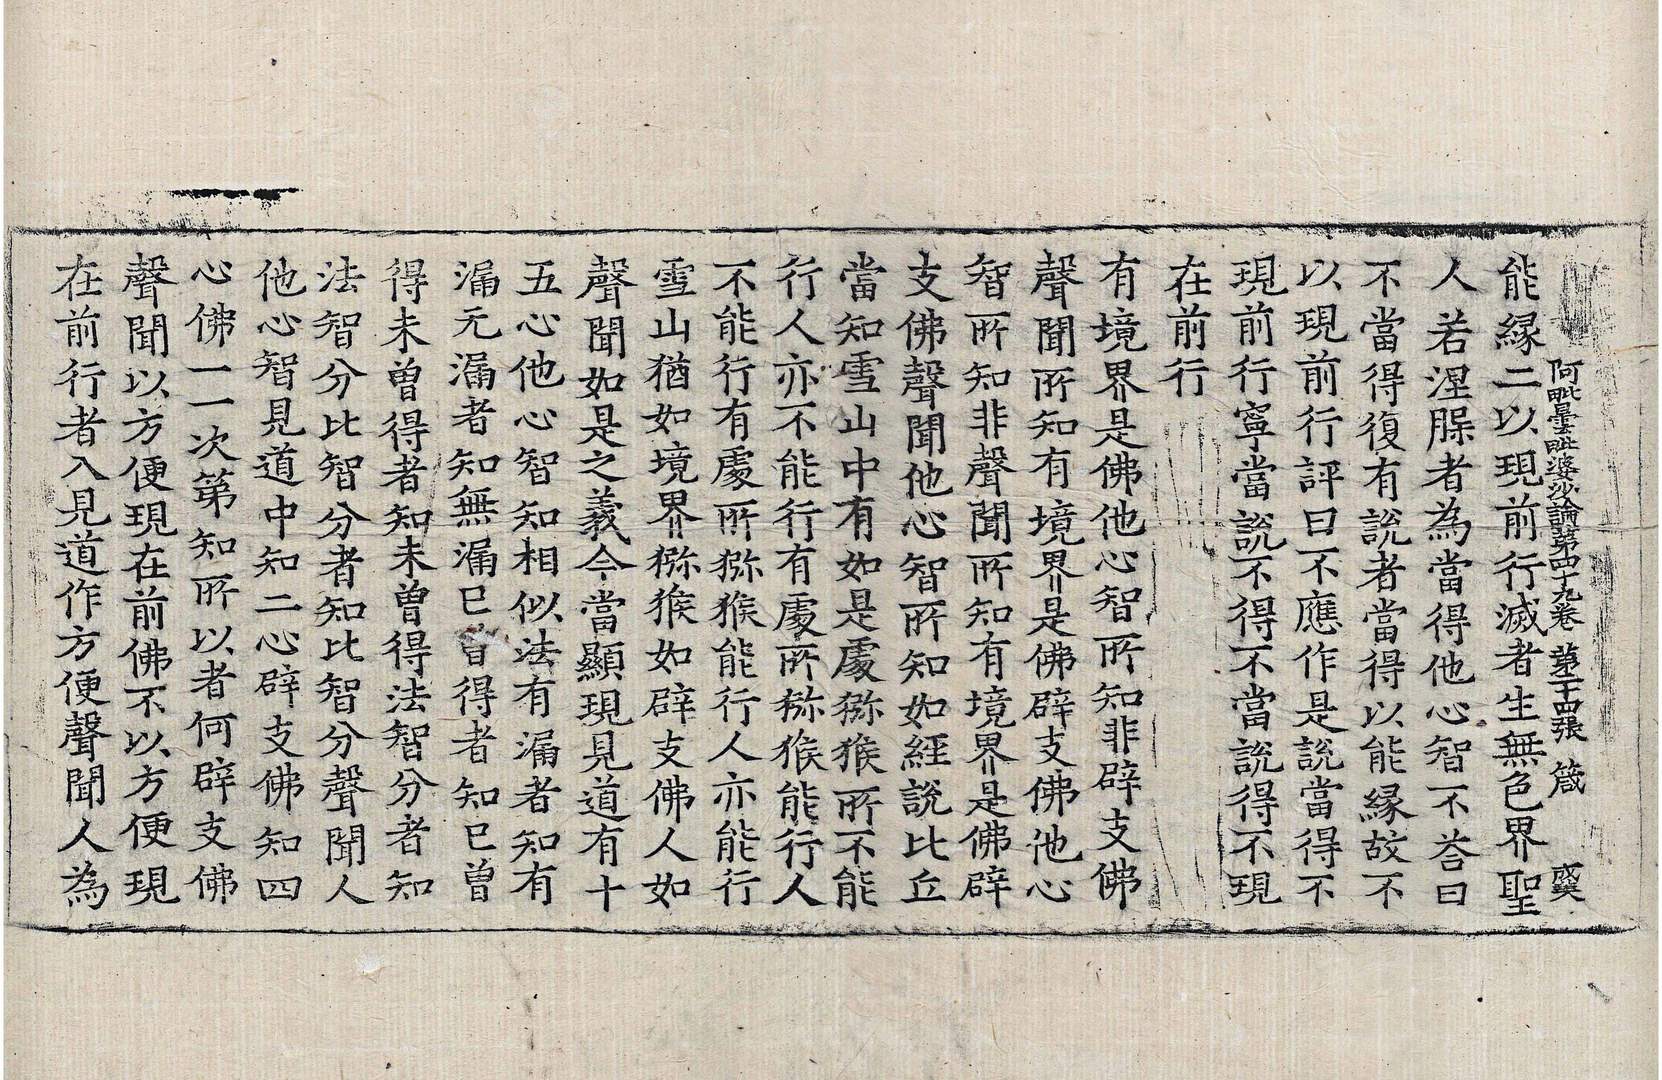 阿毗曇毗婆沙論第四十九卷　第二十四張　箴　戌英
能縁二以現前行滅者生無色界聖
人若涅槃者為當得他心智不荅曰
不當得復有說者當得以能縁故不
以現前行評曰不應作是說當得不
現前行寧當說不得不當說得不現
在前行
有境界是佛他心智所知非辟支佛
聲聞所知有境界是佛辟支佛他心
智所知非聲聞所知有境界是佛辟
支佛聲聞他心智所知如經說比丘
當知雪山中有如是處獼猴所不能
行人亦不能行有處所獼猴能行人
不能行有處所獼猴能行人亦能行
雪山猶如境界獼猴如辟支佛人如
聲聞如是之義今當顯現見道有十
五心他心智知相似法有漏者知有
漏无漏者知無漏已曾得者知已曾
得未曾得者知未曾得法智分者知
法智分比智分者知比智分聲聞人
他心智見道中知二心辟支佛知四
心佛一一次第知所以者何辟支佛
聲聞以方便現在前佛不以方便現
在前行者入見道作方便聲聞人為